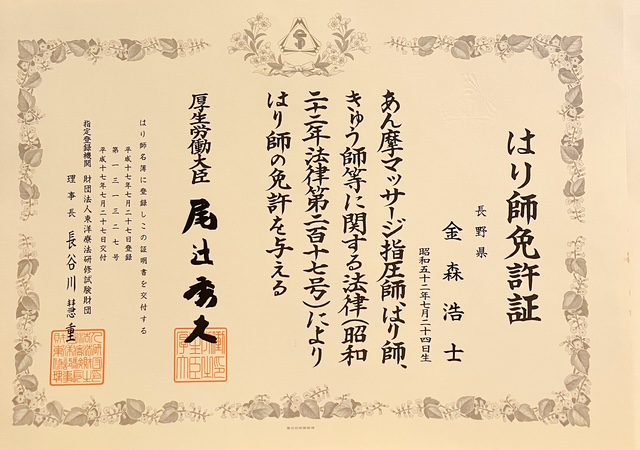 はり師免許証
長野県
金森浩士
昭和五十二年七月二十四日生
あん摩マッサージ指圧師、はり師、
きゅう師等に関する法律(昭和
二十二年法律第二百十七号)により
はり師の免許を与える
厚生労働大臣 尾辻秀久
はり師名簿に登録しこの証明書を交付する
平成十七年七月二十七日登録
第一三一三二七号
平成十七年七月二十七日交付
指定登録機関 財団法人東洋療法研修試験財団
理事長 長谷川慧重